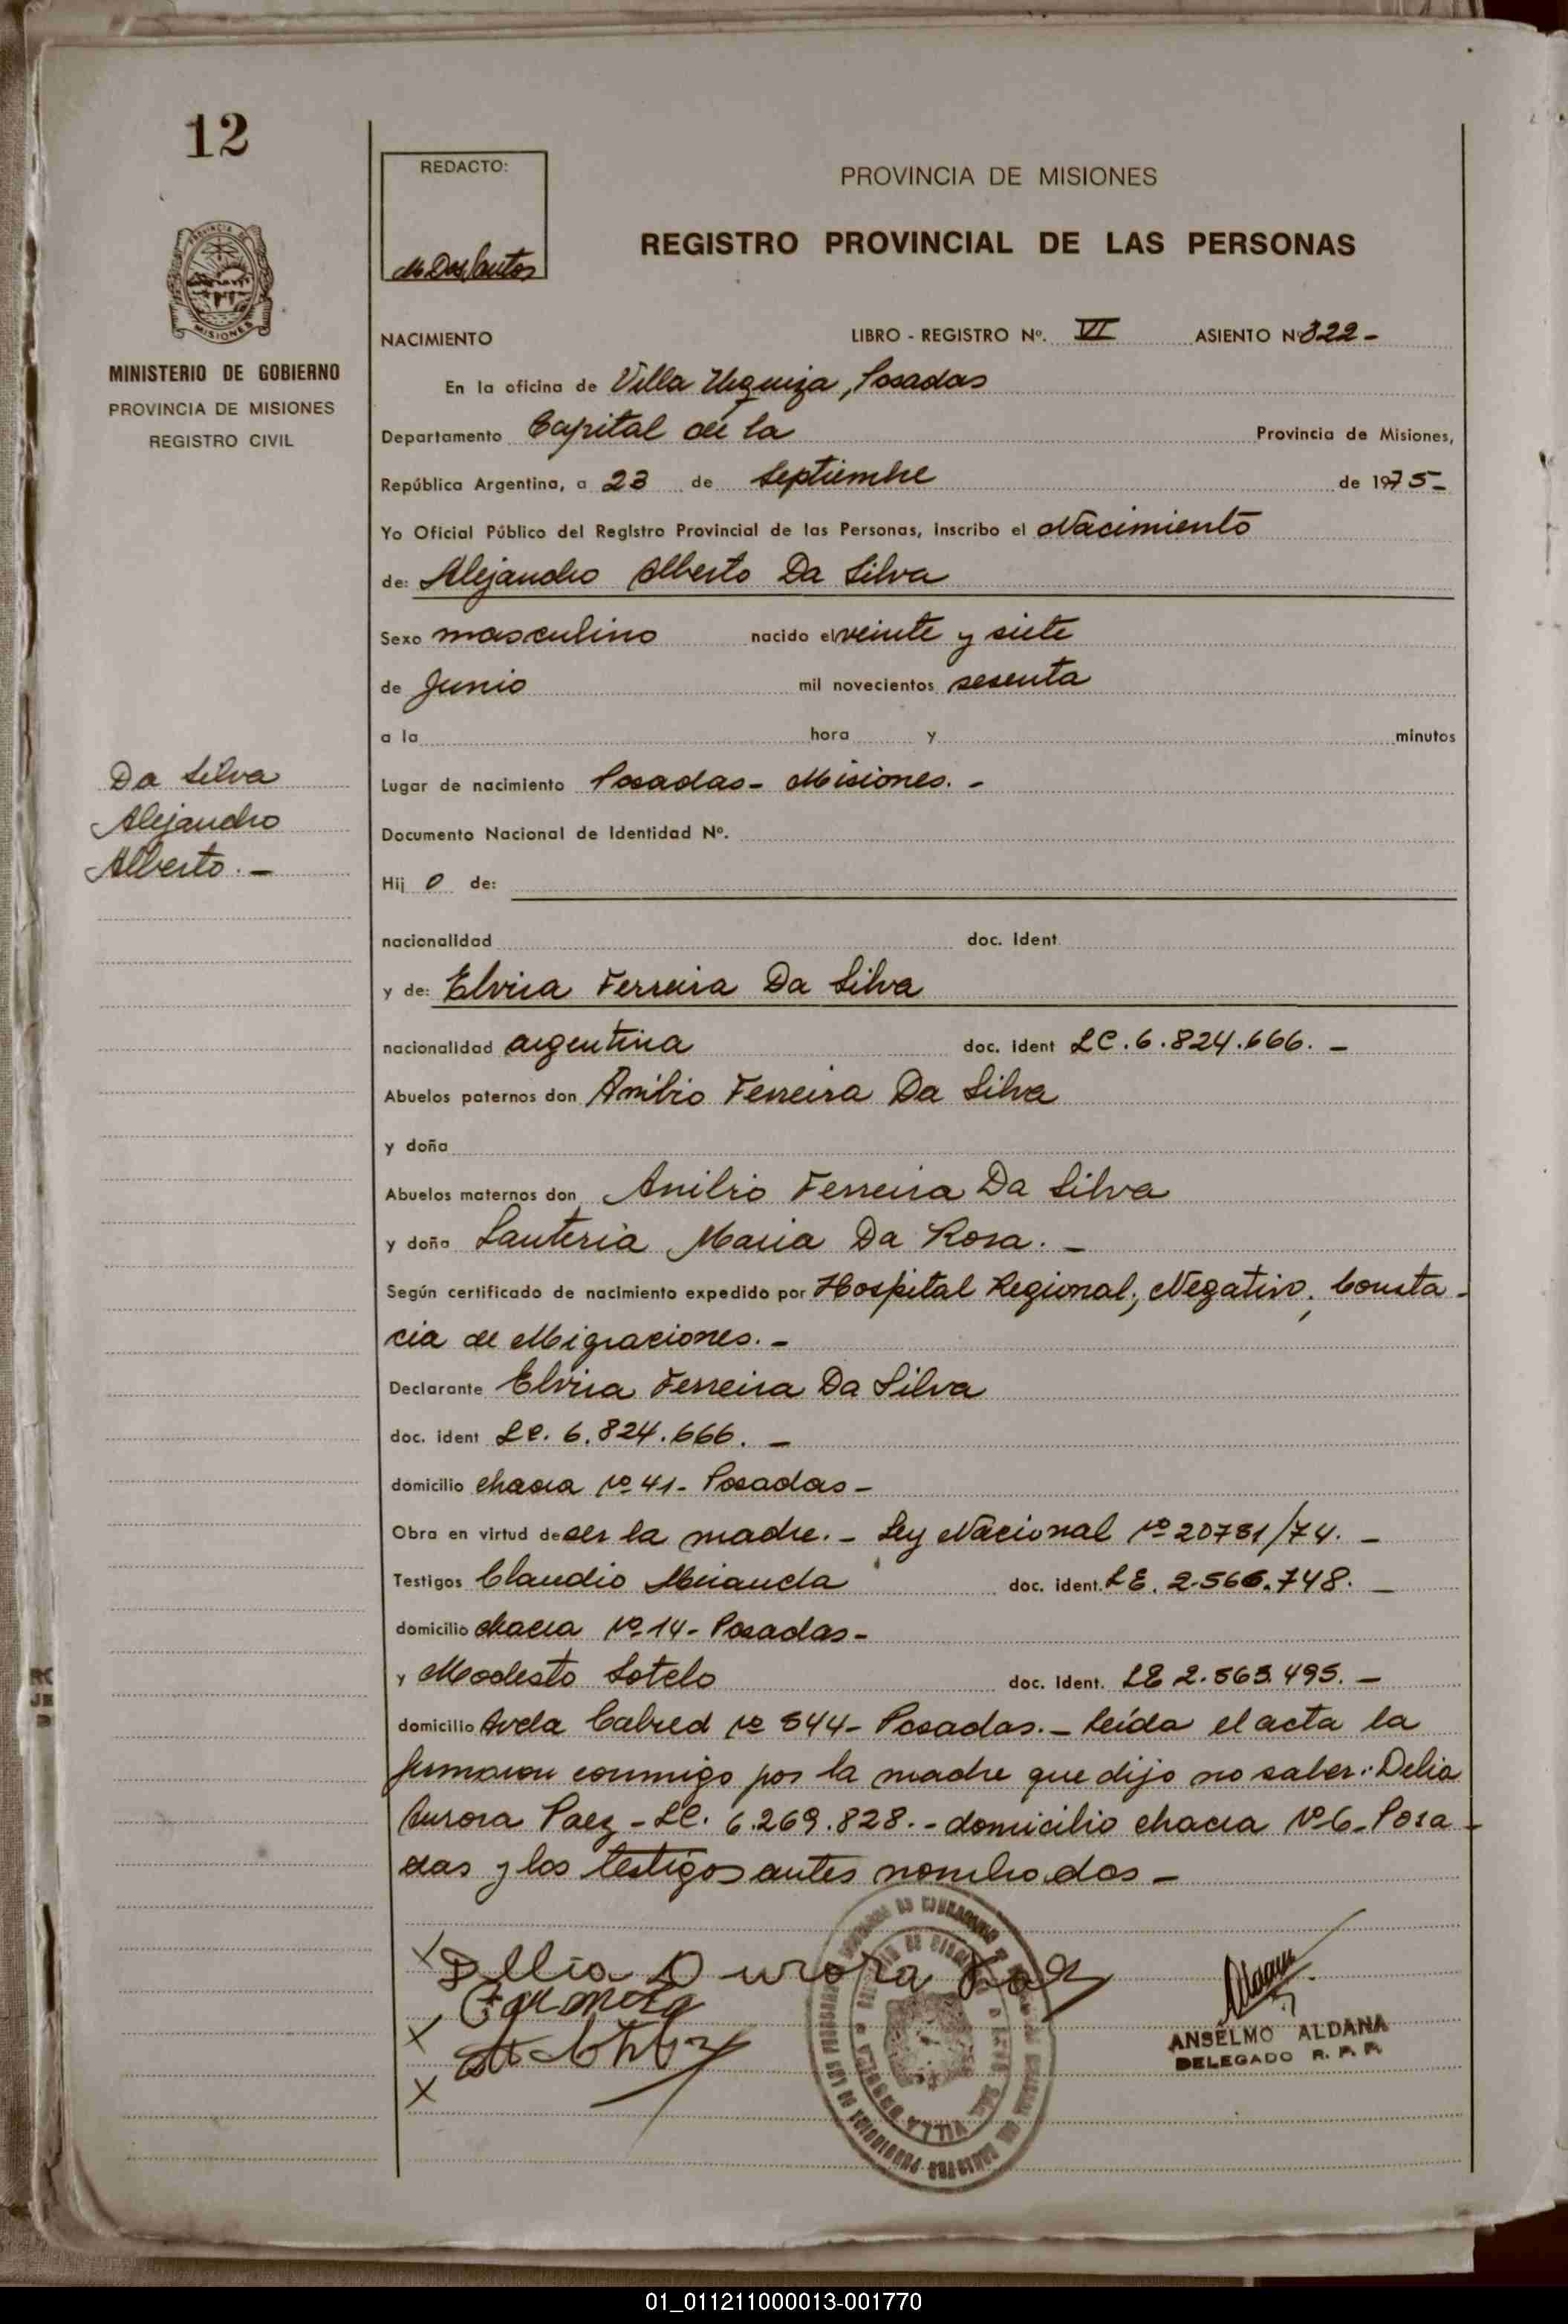 12
REDACTO:
M Dos Santos
PROVINCIA DE MISIONES
REGISTRO PROVINCIAL DE LAS PERSONAS
PROVINCIA DE
MISIONES
MINISTERIO DE GOBIERNO
PROVINCIA DE MISIONES
REGISTRO CIVIL
NACIMIENTO LIBRO - REGISTRO Nº. VI ASIENTO Nº 322-
En la oficina de Villa Urquiza, Posadas
Departamento Capital de la Provincia de Misiones,
República Argentina, a 23 de Septiembre de 1975-
Yo Oficial Público del Registro Provincial de las Personas, inscribo el Nacimiento
de: Alejandro Alberto Da Silva
Sexo masculino nacido el veinte y siete
de Junio mil novecientos sesenta
a la hora y minutos
Da Silva
Alejandro
Alberto.-
Lugar de nacimiento Posadas- Misiones.-
Documento Nacional de Identidad Nº.
Hij o de:
nacionalidad doc. ident
y de: Elvira Ferreira Da Silva
nacionalidad argentina doc. ident LC. 6.824.666.-
Abuelos paternos don Anilio Ferreira Da Silva
y doña
Abuelos maternos don Anilio Ferreira Da Silva
y doña Lauteria Maria Da Rosa.-
Según certificado de nacimiento expedido por Hospital Regional; Negativo; Consta-
cia de Migraciones.-
Declarante Elvira Ferreira Da Silva
doc. ident LC. 6.824.666.-
domicilio chacra Nº 41- Posadas-
Obra en virtud de ser la madre.- Ley Nacional Nº 20751/74.-
Testigos Claudio Miranda doc. ident. LE. 2.566.748.-
domicilio chacra Nº 14- Posadas-
y Modesto Sotelo doc. ident. LE 2.563.495.-
domicilio Avda Cabred Nº 544- Posadas.- Leída el acta la
firmaron conmigo por la madre que dijo no saber: Delia
Aurora Paez - LC. 6.269.828.- domicilio chacra Nº 6- Posa-
das y los testigos antes nombrados-
Dellia Aurora Paez
ANSELMO ALDANA
DELEGADO R. P. P.
01_011211000013-001770